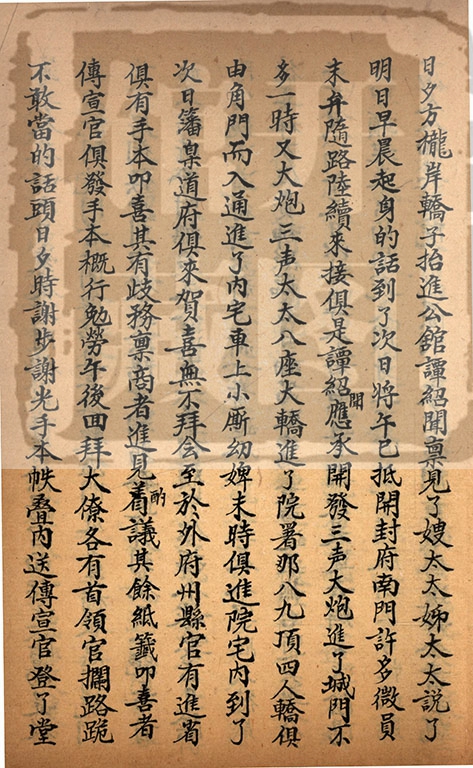 日夕方攏岸轎子抬進公舘譚紹聞禀見了嫂太太姊太太説了
明日早晨起身的話到了次日將午已抵開封府南門許多微員
末弁隨路陸續來接俱是譚紹聞應承開發三声大炮進了城門不
多一時又大炮三声太太八座大轎進了院署那八九頂四人轎俱
由角門而入通進了内宅車上小厮幼婢未時俱進院宅内到了
次日籓臬道府俱來賀喜無不拜会至於外府州縣官有進省
俱有手本叩喜其有歧務禀商者進見酌議其餘紙籤叩喜者
傳宣官俱發手本概行勉勞午後回拜大僚各有首領官攔路跪
不敢當的話頭日夕時謝步謝光手本帙叠内送傳宣官登了堂